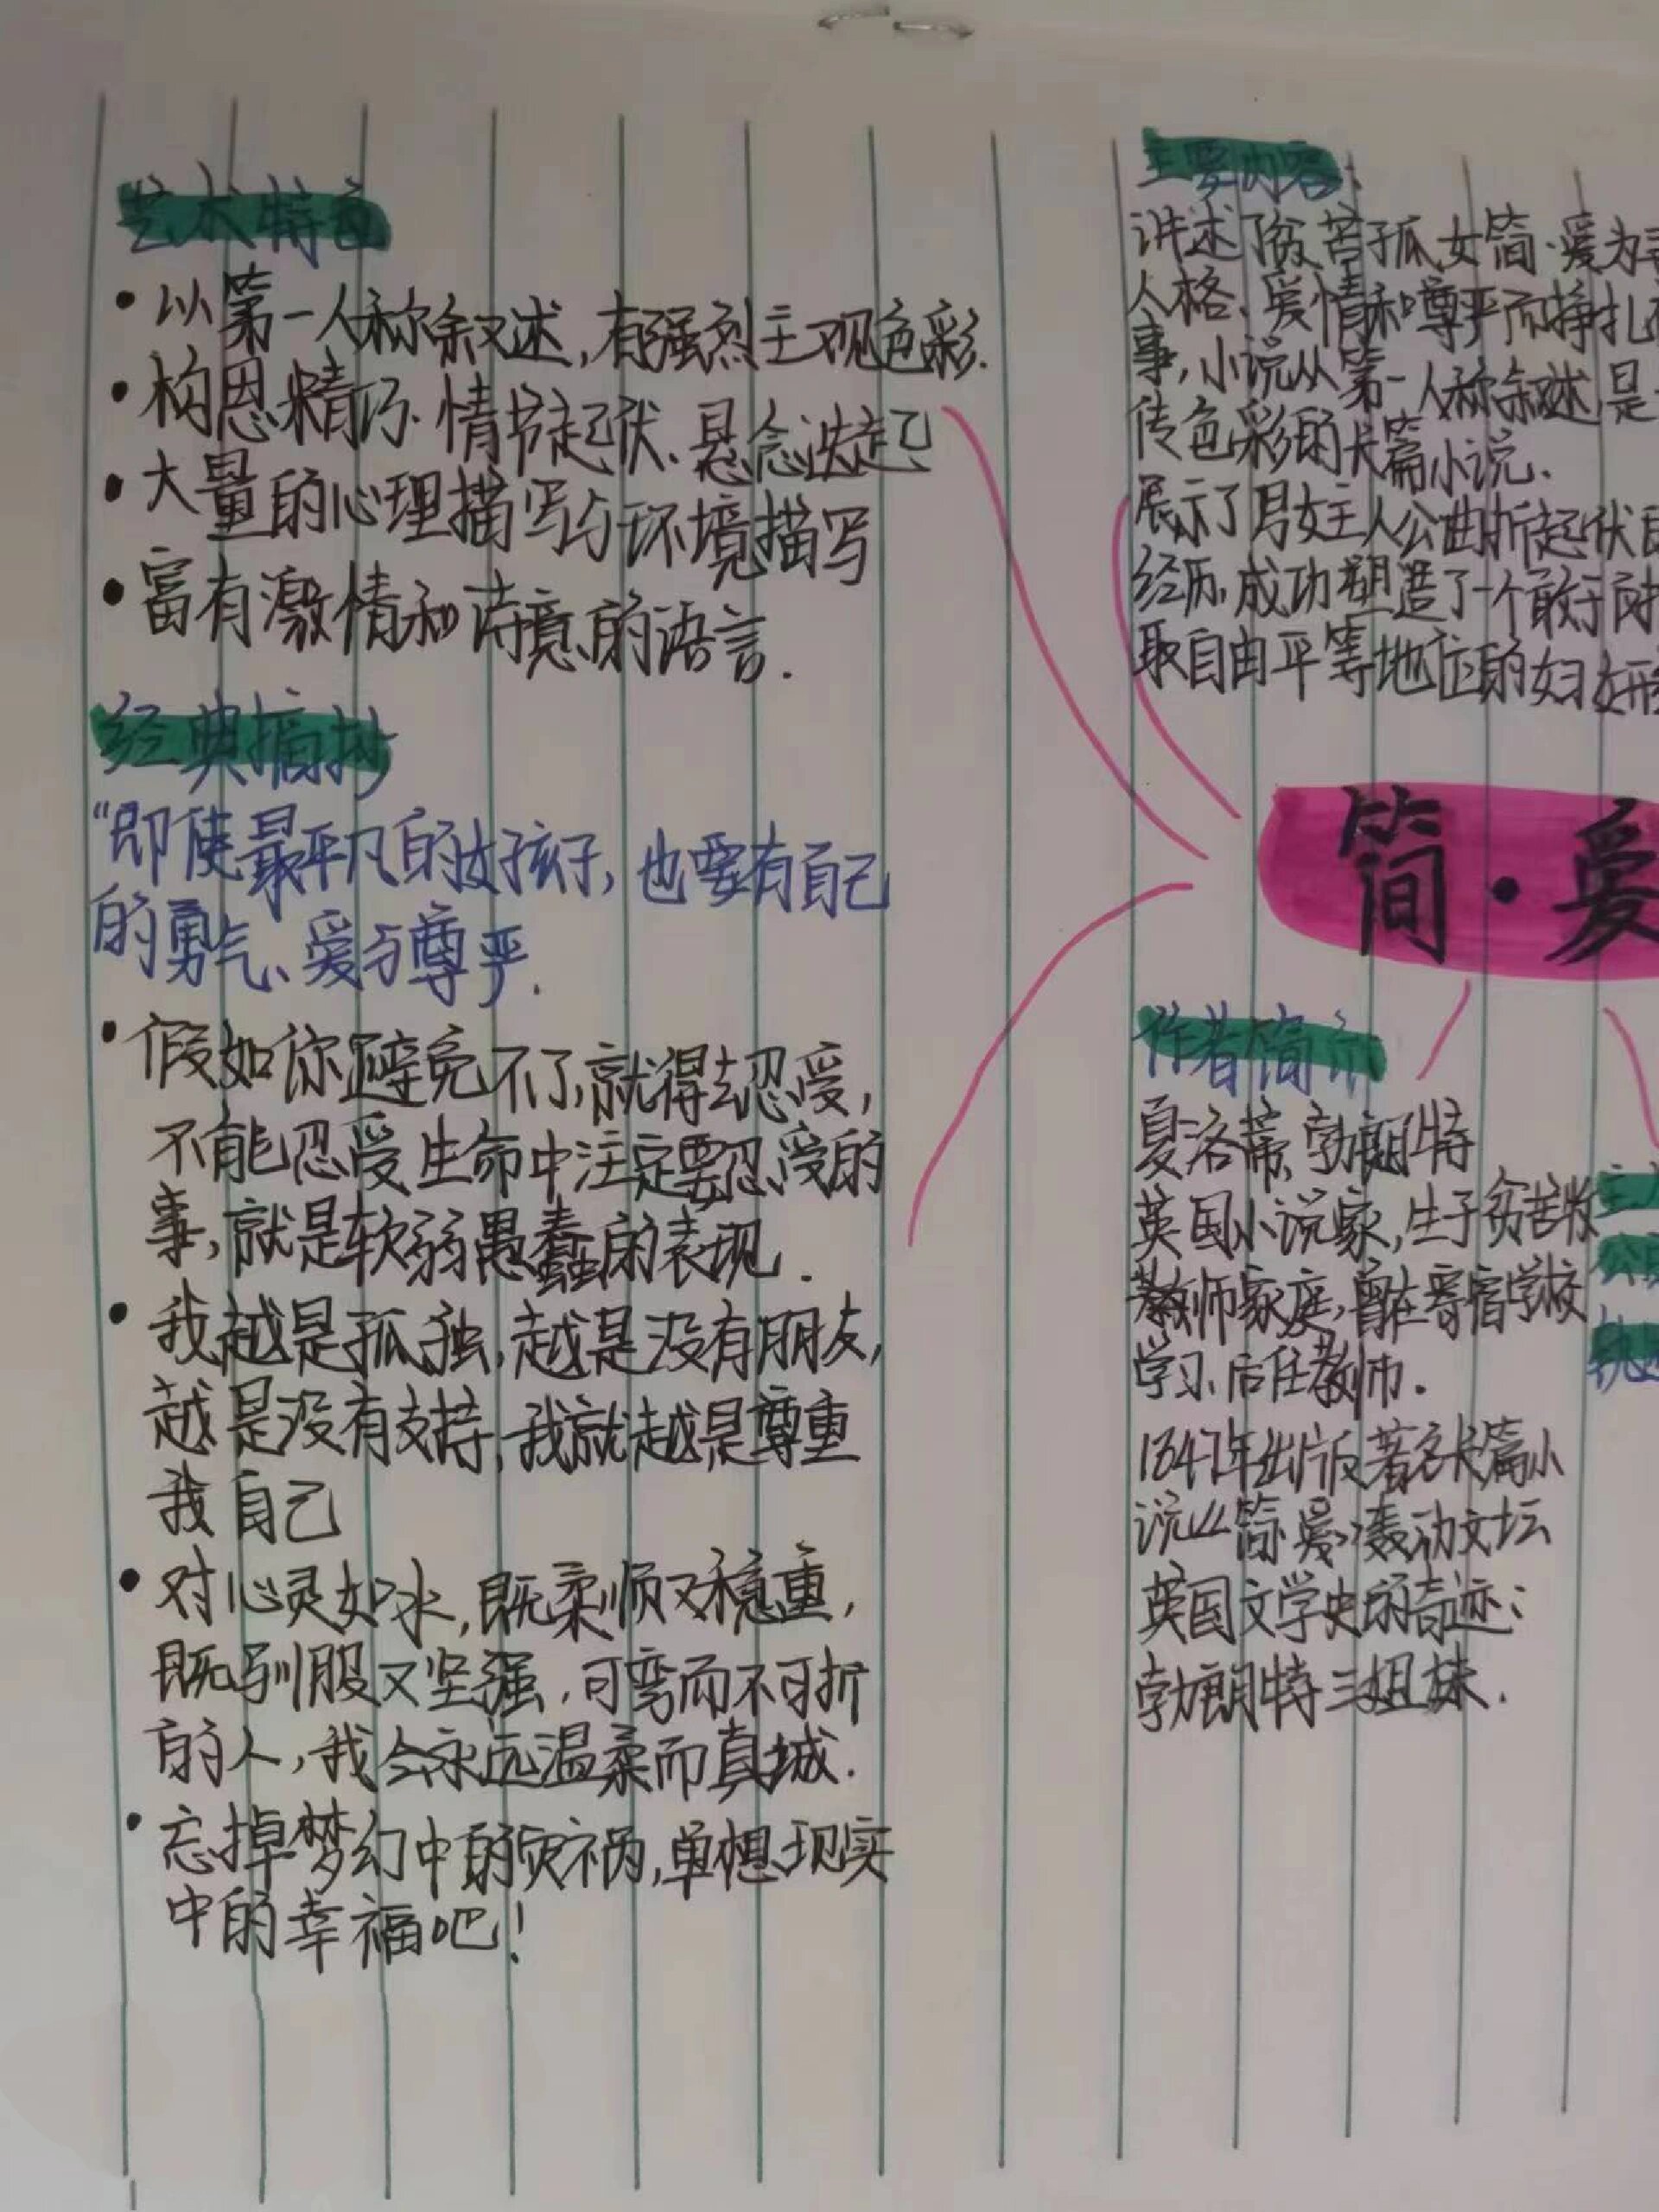 艺术特色
·以第一人称叙述,有强烈主观色彩.
·构思精巧.情节起伏.悬念迭起
·大量的心理描写与环境描写
·富有激情和诗意的语言.
经典摘抄
“即使最平凡的女孩子,也要有自己
的勇气、爱与尊严.
·假如你避免不了,就得去忍受,
不能忍受生命中注定要忍受的
事,就是软弱愚蠢的表现.
·我越是孤独,越是没有朋友,
越是没有支持,我就越是尊重
我自己
·对心灵如水,既柔顺又稳重,
既驯服又坚强,可弯而不可折
的人,我会永远温柔而真城.
·忘掉梦幻中的灾祸,单想现实
中的幸福吧!
主要内容:
讲述了贫苦孤女简·爱为
人格、爱情和尊严而挣扎
事,小说从第一人称叙述,是
传色彩的长篇小说.
展示了男女主人公曲折起伏
经历,成功塑造了一个敢于
取自由平等地位的妇女
简·爱
作者简介
夏洛蒂.勃朗特
英国小说家,生于贫苦牧
教师家庭,曾在寄宿学校
学习、后任教师.
1847年出版著名长篇小
说《简·爱》轰动文坛
英国文学史的奇迹:
勃朗特三姐妹.
主